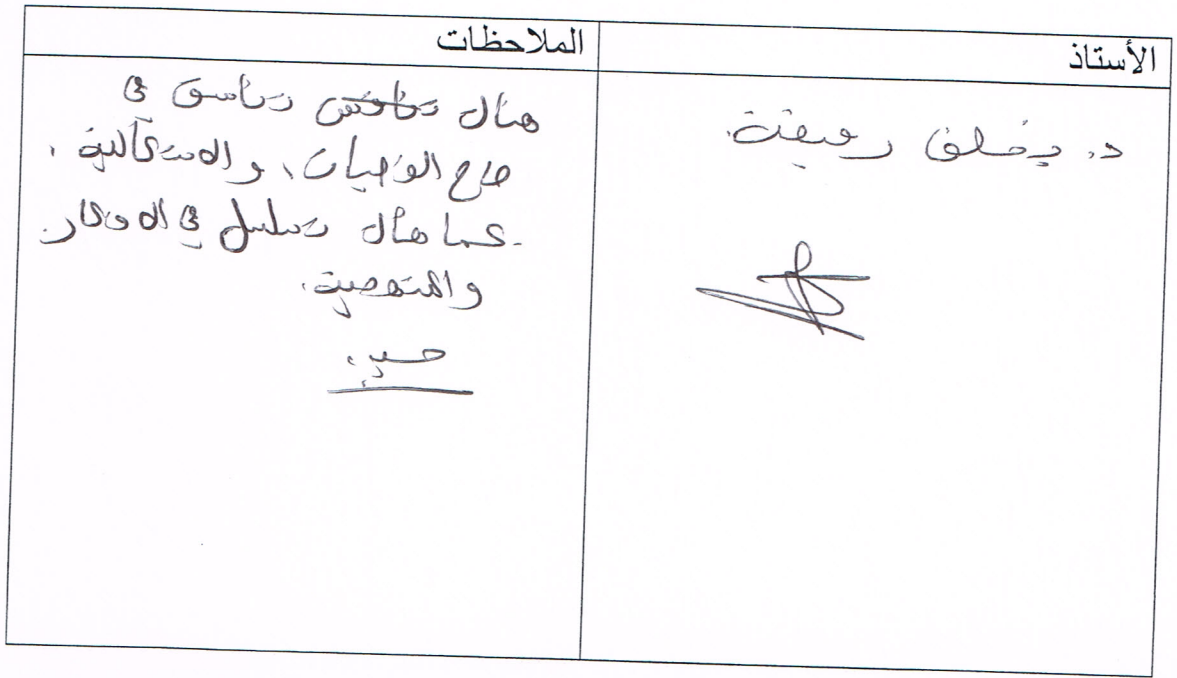 الأستاذ
الملاحظات
د. يخلف رفيقة.
هناك تناسق في
طرح الفرضيات، والاشكالية.
كما هناك تسلسل في الأفكار
والمنهجية.
جيد.